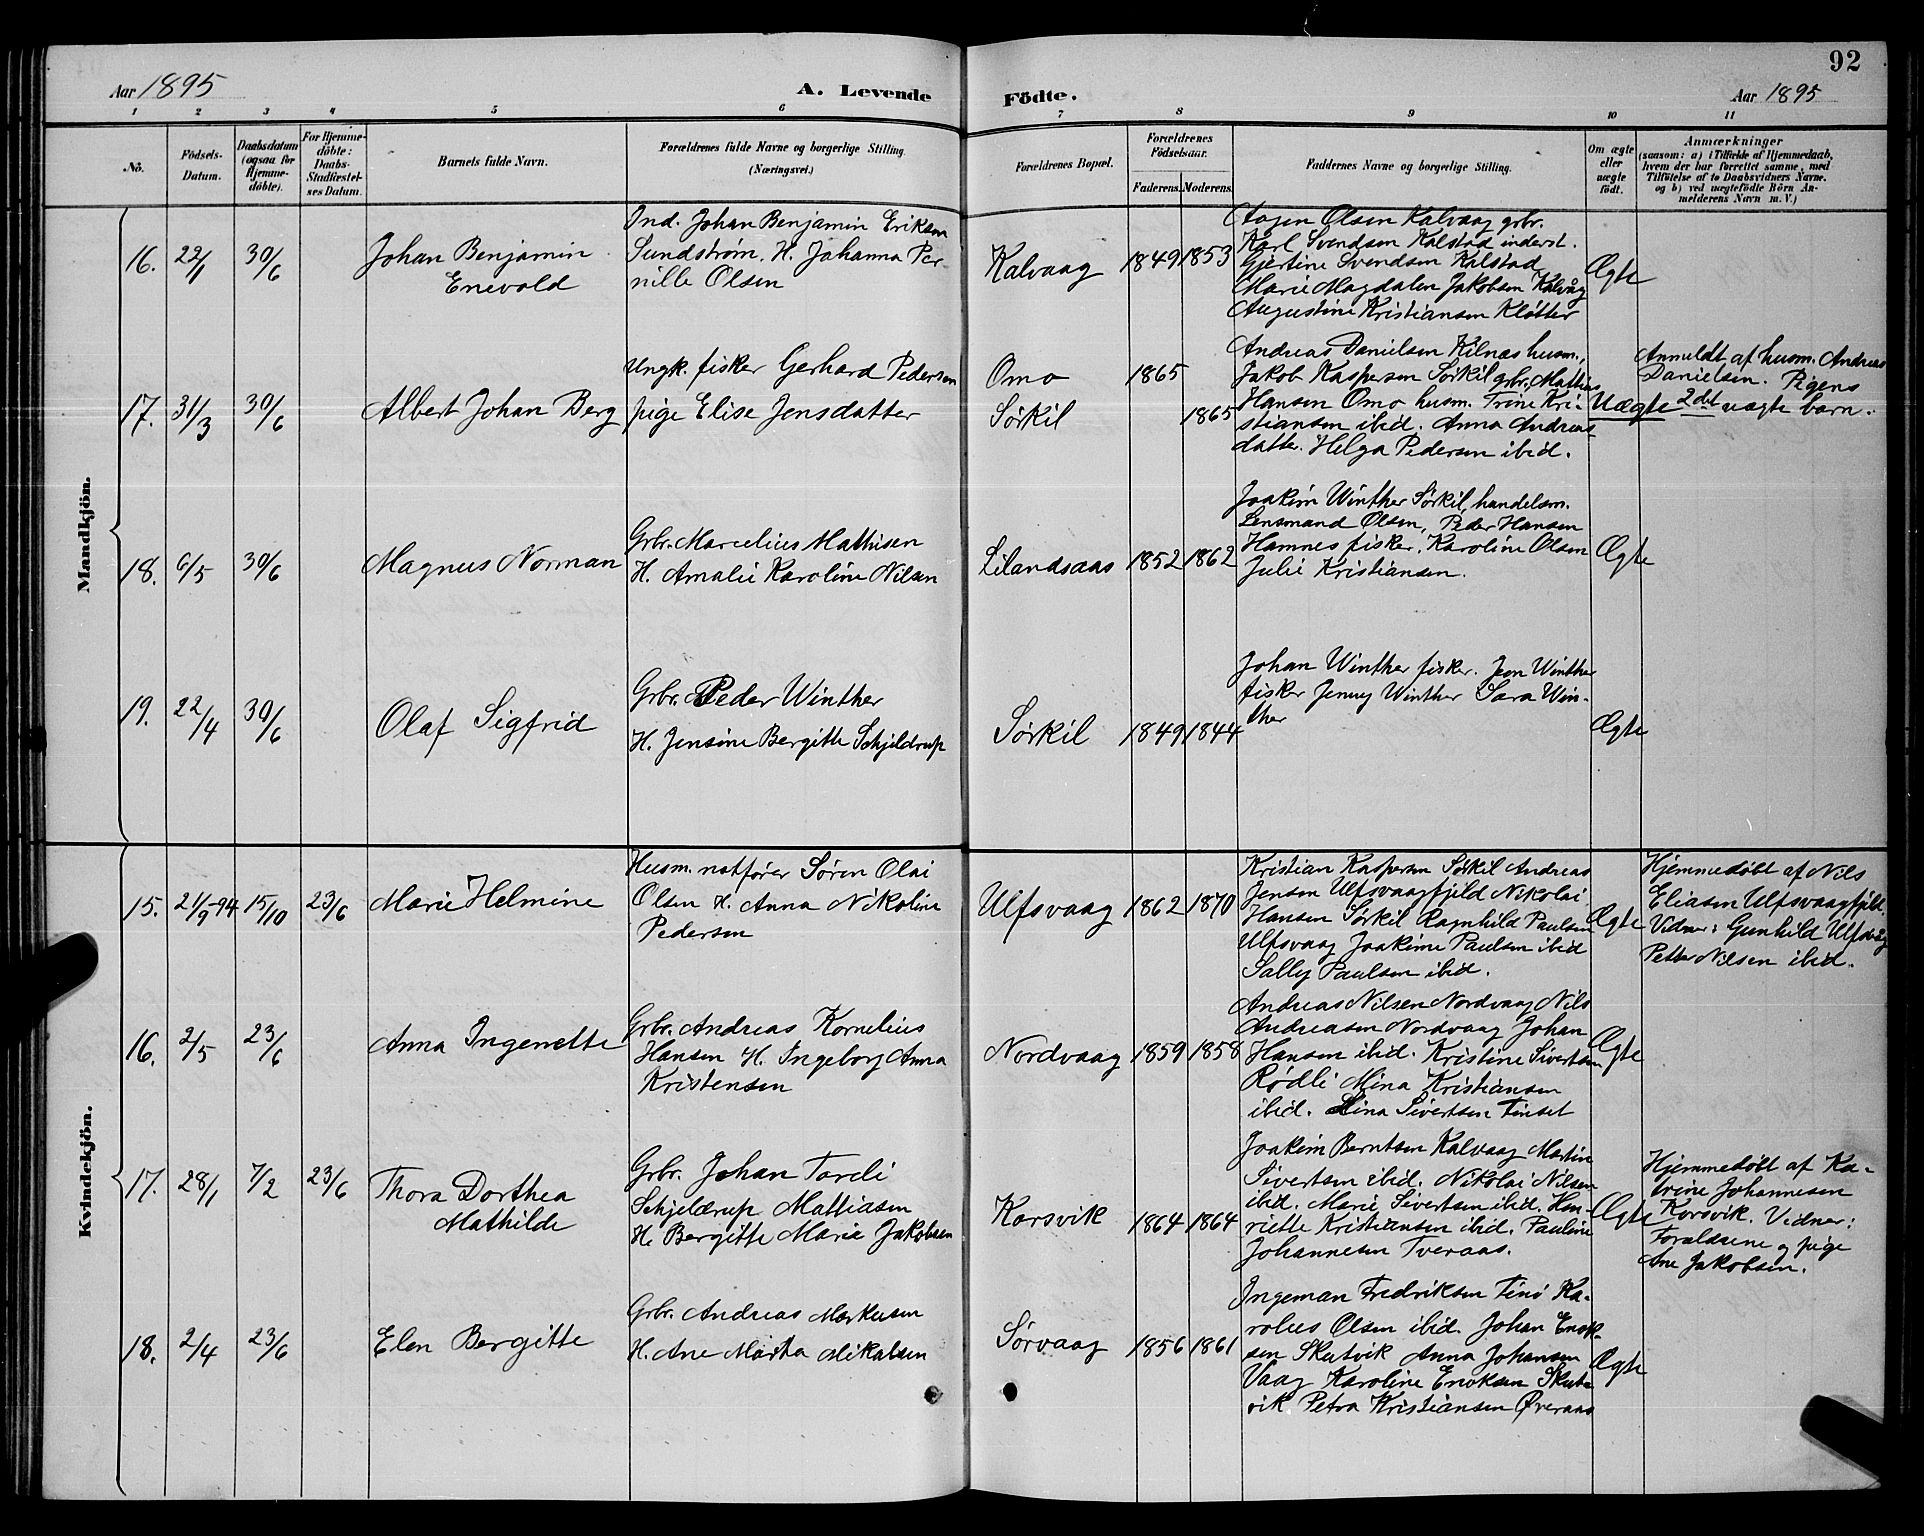 92
Aar 1895
A. Levende
Födte.
Aar 1895
1 2 3 4 5 6 7 8 9 10 11
No.
Födsels-
Datum.
Daabsdatum
(ogsaa for
Hjemme-
döbte).
For Hjemme-
döbte:
Daabs-
Stadfæstel-
ses Datum.
Barnets fulde Navn.
Forældrenes fulde Navne og borgerlige Stilling
(Næringsvei.)
Forældrenes Bopæl.
Forældrenes
Födselsaar.
Faderens. Moderens.
Faddernes Navne og borgerlige Stilling.
Om ægte
eller
uægte
födt.
Anmærkninger
(saasom: a) i Tilfælde af Hjemmedaab,
hvem der har forrettet samme, med
Tilföielse af to Daabsvidners Navne.
og b) ved uægtefödte Börn An-
melderens Navn m. V.)
Mandkjön.
16. 22/1 30/6
Johan Benjamin
Enevold
Ind. Johan Benjamin Eriksen
Sundstrøm. H. Johanna Per-
nille Olsen
Kalvaag 1849 1853
Olsen Kalvaag grbr.
Karl Svendsen Kalstad inderst.
Gjertine Svendsen Kalstad
Marie Magdalen Jakobsen Kalvåg
Augustine Kristiansen Kløtter
Ægte
17. 31/3 30/6
Albert Johan Berg
Ungk. fisker Gerhard Pedersen
pige Elise Jensdatter
Omo 1865
Sørkil 1865
Andreas Danielsen Kilnæs husm.,
Jakob Kaspersen Sørkil grbr. Mathias
Hansen Omo husm. Trine Kri-
stiansen ibid. Anna Andreas-
datter. Helga Pedersen ibid.
Uægte
Anmeldt af husm. Andreas
Danielsen. Pigens
2det uægte barn.
18. 6/5 30/6
Magnus Norman
Grbr. Marcelius Mathisen
H. Amalie Karoline Nilsen
Lilandsaas 1852 1862
Joakim Winther Sørkil, handelsm.
Lensmand Olsen, Peder Hansen
Hamnes fisker. Karoline Olsen
Julie Kristiansen.
Ægte
19. 22/4 30/6
Olaf Sigfrid
Grbr. Peder Winther
H. Jensine Bergitte Schjeldrup
Sørkil 1849 1844
Johan Winther fisker. Jen Winther
fisker Jenny Winther Sara Win-
ther
Ægte
Kvindekjön.
15. 21/9-94 15/10 23/6
Marie Helmine
Husm. notfører Søren Olai
Olsen H. Anna Nikoline
Pedersen
Ulfsvaag 1862 1870
Kristian Kaspersen Sørkil Andreas
Jensen Ulfsvaagfjeld Nikolai
Hansen Sørkil Ragnhild Paulsen
Ulfsvaag Joakime Paulsen ibid
Sally Paulsen ibid.
Ægte
Hjemmedøbt af Nils
Eliasen Ulfsvaagfjeld.
Vidner: Gunhild Ulfsvåg
Petter Nilsen ibid.
16. 2/5 23/6
Anna Ingenette
Grbr. Andreas Kornelius
Hansen H. Ingeborg Anna
Kristensen
Nordvaag 1859 1858
Andreas Nilsen Nordvaag Nils
Andreasen Nordvaag Johan
Hansen ibid. Kristine Sivertsen
Rødli Mina Kristiansen
ibid. Lina Sivertsen Finset
Ægte
17. 28/1 7/2 23/6
Thora Dorthea
Mathilde
Grbr. Johan Tordi
Schjeldrup Mattiasen
H. Bergitte Marie Jakobsen
Korsvik 1864 1864
Joakim Berntsen Kalvaag Martin
Sivertsen ibid. Nikolai Nilsen
ibid. Marie Sivertsen ibid. Hen-
riette Kristiansen ibid. Pauline
Johannesen Tveraas.
Ægte
Hjemmedøbt af Ka-
trine Johannesen
Korsvik. Vidner:
Forældrene og pige
Ane Jakobsen.
18. 2/4 23/6
Elen Bergitte
Grbr. Andreas Markusen
H. Ane Marta Mikalsen
Sørvaag 1856 1861
Ingeman Fredriksen Finø Ka-
rolus Olsen ibid. Johan Enok-
sen Skutvik Anna Johansen
Vaag Karoline Enoksen Skut-
vik Petra Kristiansen Øveraas
Ægte